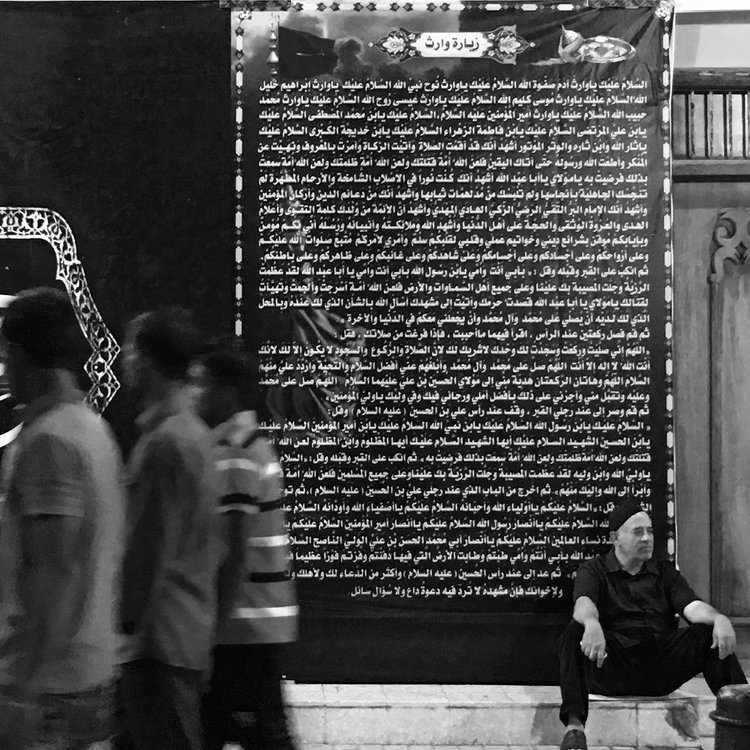 زيارة وارث
السَّلامُ عَلَيْكَ ياوارِثَ آدَمَ صَفْوَةِ الله السَّلامُ عَلَيْكَ ياوارِثَ نُوحٍ نَبِيِّ الله السَّلامُ عَلَيْكَ ياوارِثَ إبْراهيمَ خَليلِ
الله السَّلامُ عَلَيْكَ ياوارِثَ موسى كَليمِ الله السَّلامُ عَلَيْكَ ياوارِثَ عيسى رُوحِ الله السَّلامُ عَلَيْكَ ياوارِثَ مُحَمَّدٍ
حَبيبِ الله السَّلامُ عَلَيْكَ ياوارِثَ أميرِ المُؤْمِنينَ عليه السَّلام، السَّلامُ عَلَيْكَ يابْنَ مُحَمَّدٍ المُصْطَفى السَّلامُ عَلَيْكَ
يابْنَ عَلِيٍّ المُرْتَضى السَّلامُ عَلَيْكَ يابْنَ فاطِمَةَ الزَّهْراءِ السَّلامُ عَلَيْكَ يابْنَ خَديجَةَ الكُبْرى السَّلامُ عَلَيْكَ
ياثارَ الله وابْنَ ثارِهِ والوِتْرَ المَوْتورَ أشْهَدُ أنَّكَ قَدْ أقَمْتَ الصَّلاةَ وآتَيْتَ الزَّكاةَ وأمَرْتَ بالمَعْروفِ ونَهَيْتَ عَنِ
المُنْكَرِ وأطَعْتَ الله ورَسولَهُ حَتّى أتاكَ اليَقينُ فَلَعَنَ الله أُمَّةً قَتَلَتْكَ ولَعَنَ الله أُمَّةً ظَلَمَتْكَ ولَعَنَ الله أُمَّةً سَمِعَتْ
بِذلِكَ فَرَضِيَتْ بِهِ يامَوْلايَ ياأبا عَبْدِ الله أشْهَدُ أنَّكَ كُنْتَ نُوراً في الأصْلابِ الشّامِخَةِ والأرْحامِ المُطَهَّرَةِ لَمْ
تُنَجِّسْكَ الجاهِلِيَّةُ بأنْجاسِها ولَمْ تُلْبِسْكَ مِنْ مُدْلَهِمّاتِ ثِيابِها وأشْهَدُ أنَّكَ مِنْ دَعائِمِ الدّينِ وأرْكانِ المُؤْمِنينَ
وأشْهَدُ أنَّكَ الإمامُ البَرُّ التَّقِيُّ الرَّضِيُّ الزَّكِيُّ الهادي المَهْدِيُّ وأشْهَدُ أنَّ الأئِمَّةَ مِنْ وُلْدِكَ كَلِمَةُ التَّقْوى وأعْلامُ
الهُدى والعُرْوَةُ الوُثْقى والحُجَّةُ على أهْلِ الدُّنْيا وأُشْهِدُ الله ومَلائِكَتَهُ وأنْبِياءَهُ ورُسُلَهُ أنّي بِكُمْ مُؤْمِنٌ
وبإيابِكُمْ موقِنٌ بِشَرائِعِ ديني وخَواتيمِ عَمَلي وقَلْبي لِقَلْبِكُمْ سِلْمٌ وأمْري لأمْرِكُمْ مُتَّبِعٌ صَلَواتُ الله عَلَيْكُمْ
وعلى أرْواحِكُمْ وعلى أجْسادِكُمْ وعلى أجْسامِكُمْ وعلى شاهِدِكُمْ وعلى غائِبِكُمْ وعلى ظاهِرِكُمْ وعلى باطِنِكُمْ
ثم انكب على القبر وقبله وقل : « بأبي أنْتَ وأُمّي يابْنَ رَسولِ الله بأبي أنْتَ وأُمّي يا أبا عَبْدِ الله لَقَدْ عَظُمَتِ
الرَّزِيَّةُ وجَلَّتِ المُصيبَةُ بِكَ عَلَيْنا وعلى جَميعِ أهْلِ السَّماواتِ والأرْضِ فَلَعَنَ الله أُمَّةً أسْرَجَتْ وألْجَمَتْ وتَهَيَّأتْ
لِقِتالِكَ يامَوْلايَ يا أبا عَبْدِ الله قَصَدْتُ حَرَمَكَ وأتَيْتُ إلى مَشْهَدِكَ أسْألُ الله بالشَّأنِ الَّذي لَكَ عِنْدَهُ وبالمَحَلِّ
الَّذي لَكَ لَدَيْهِ أنْ يُصَلِّيَ على مُحَمَّدٍ وآلِ مُحَمَّدٍ وأنْ يَجْعَلَني مَعَكُمْ في الدُّنْيا والآخِرَةِ »
ثم قم فصل ركعتين عند الراس ، اقرأ فيهما ماأحببت ، فإذا فرغت من صلاتك ، فقل :
« اللهُمَّ إنّي صَلَّيْتُ ورَكَعْتُ وسَجَدْتُ لَكَ وَحْدَكَ لاشَريكَ لَكَ لأنَّ الصَّلاةَ والرُّكوعَ والسُّجودَ لا يَكونُ إلّا لَكَ لأنَّكَ
أنْتَ الله لا إله إلّا أنْتَ اللهُمَّ صَلِّ على مُحَمَّدٍ وآلِ مُحَمَّدٍ وأبْلِغْهُمْ عَنّي أفْضَلَ السَّلامِ والتَّحِيَّةِ وارْدُدْ عَلَيَّ مِنْهُمُ
السَّلامَ اللهُمَّ وهاتانِ الرَّكْعَتانِ هَدِيَّةٌ مِنّي إلى مَوْلايَ الحُسَيْنِ بْنِ عَلِيٍّ عَلَيْهِما السَّلام اللهُمَّ صَلِّ على مُحَمَّدٍ
وعَلَيْهِ وتَقَبَّلْ مِنّي وأْجُرْني على ذلِكَ بأفْضَلِ أمَلي ورَجائي فيكَ وفي وَلِيِّكَ ياوَلِيَّ المُؤْمِنينَ»
ثم قم وصر إلى عند رجلي القبر ، وقف عند رأس علي بن الحسين (عليه السلام) وقل :
السَّلامُ عَلَيْكَ يابْنَ رَسولِ الله السَّلامُ عَلَيْكَ يابْنَ نَبِيِّ الله السَّلامُ عَلَيْكَ يابْنَ أميرِ المُؤْمِنينَ السَّلامُ عَلَيْكَ
يابْنَ الحُسَيْنِ الشَّهيدِ السَّلامُ عَلَيْكَ أيُّها الشَّهيدُ السَّلامُ عَلَيْكَ أيُّها المَظْلومُ وابْنُ المَظْلومِ لَعَنَ الله
قَتَلَتْكَ ولَعَنَ الله أُمَّةً ظَلَمَتْكَ ولَعَنَ الله أُمَّةً سَمِعَتْ بِذلِكَ فَرَضِيَتْ بِهِ » ثم انكب على القبر وقبله وقل : «السَّلامُ
ياوَلِيَّ الله وابْنَ وَلِيِّهِ لَقَدْ عَظُمَتِ المُصيبَةُ وجَلَّتِ الرَّزِيَّةُ بِكَ عَلَيْنا وعلى جَميعِ المُسْلِمينَ فَلَعَنَ الله أُمَّةً
وأبْرَأُ إلى الله وإلَيْكَ مِنْهُمْ» ثم اخرج من الباب الذي عند رجلي علي بن الحسين (عليه السلام) ، ثم
قل : «السَّلامُ عَلَيْكُمْ ياأوْلِياءَ الله وأحِبّاءَهُ السَّلامُ عَلَيْكُمْ ياأصْفِياءَ الله وأوِدّاءَهُ السَّلامُ
السَّلامُ عَلَيْكُمْ ياأنْصارَ رَسولِ الله السَّلامُ عَلَيْكُمْ ياأنْصارَ أميرِ المُؤْمِنينَ السَّلامُ عَلَيْكُمْ
نِساءِ العالَمينَ السَّلامُ عَلَيْكُمْ ياأنْصارَ أبي مُحَمَّدٍ الحَسَنِ بْنِ عَلِيٍّ الوَلِيِّ النّاصِحِ السَّلامُ
الله بأبي أنْتُمْ وأُمّي طِبْتُمْ وطابَتِ الأرْضُ الَّتي فيها دُفِنْتُمْ وفُزْتُمْ فَوْزاً عَظيماً
» ثم عد إلى عند رأس الحسين (عليه السلام) وأكثر من الدعاء لك ولأهلك
ولإخوانك فإن مشهده لا ترد فيه دعوة داع ولا سؤال سائل